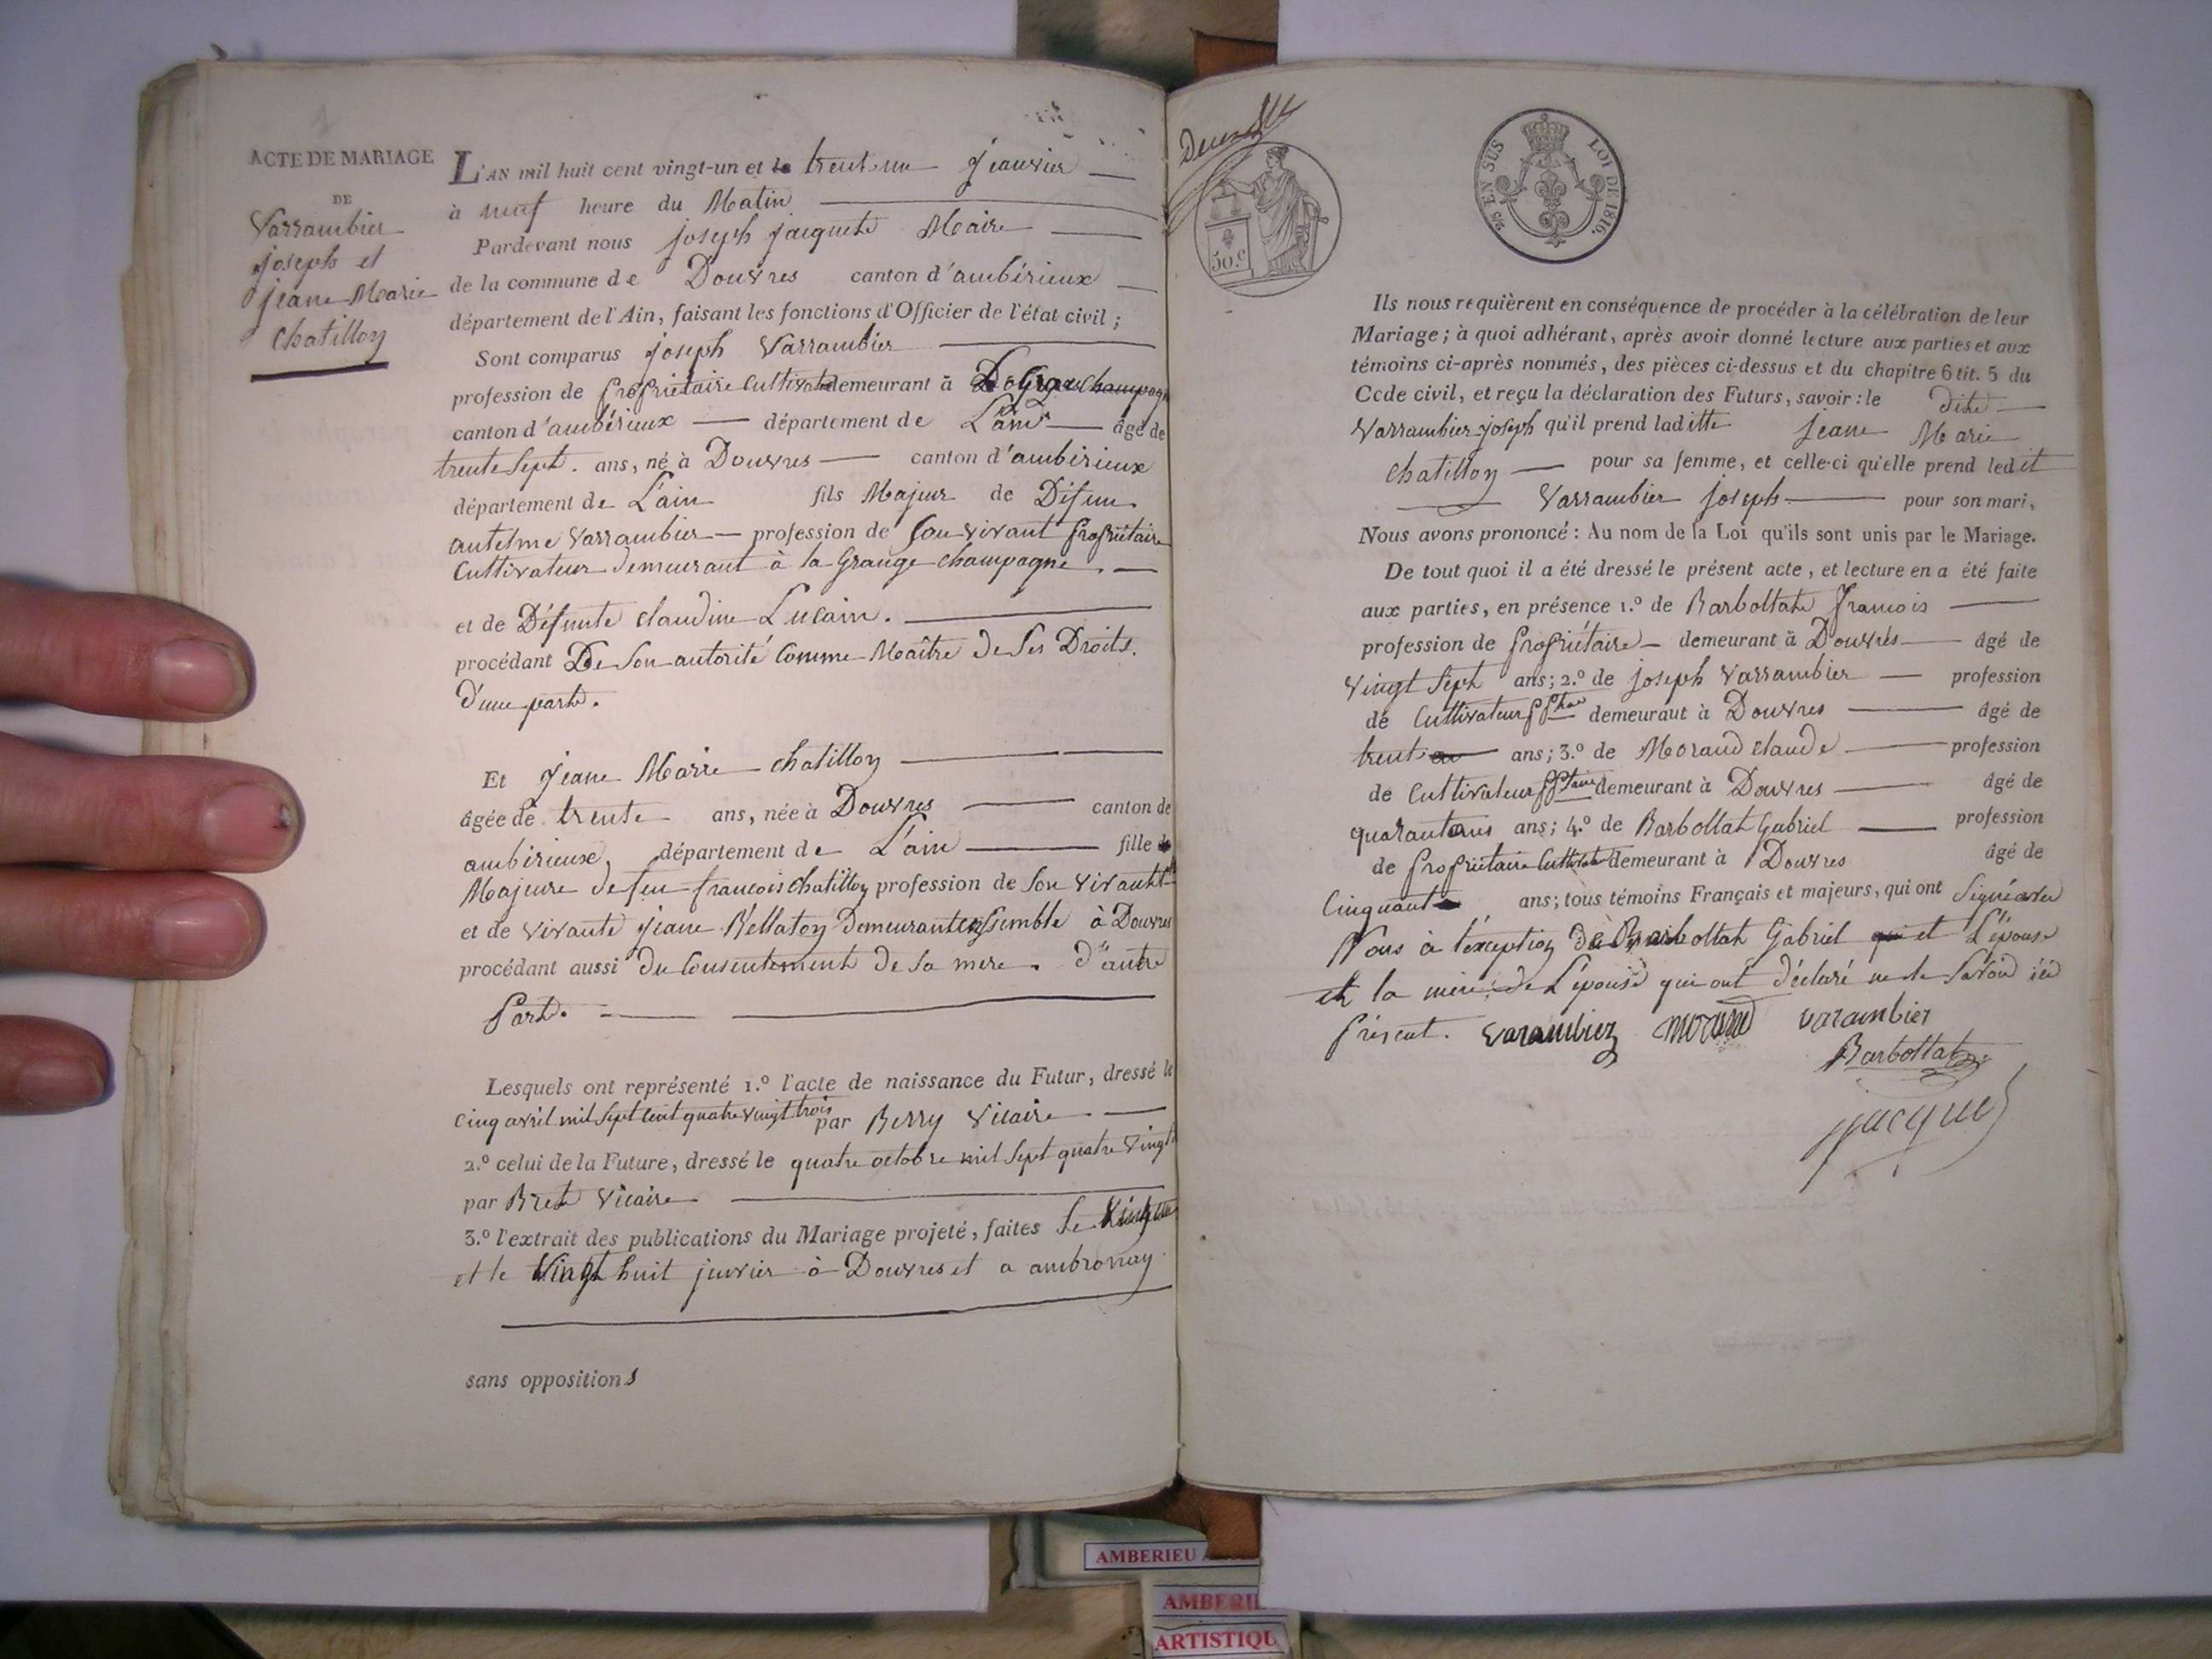 ACTE DE MARIAGE
DE
Varrambier
joseph et
jeane Marie
chatillon
L'AN mil huit cent vingt-un et le trent un jeanvier
à neuf heure du Matin
Pardevant nous joseph jacquete Maire
de la commune de Douvres canton d'ambérieux
département de l'Ain, faisant les fonctions d'Officier de l'état civil ;
Sont comparus joseph Varrambier
profession de proprietaire Cultivat demeurant à champagn
canton d'ambérieux département de L'ain âgé de
trente Sept. ans, né à Douvres canton d'ambérieux
département de L'ain fils Majeur de Défun
antelme Varrambier profession de Son vivant propriétaire
Cultivateur demeurant à la Grange champagne.
et de Défunte claudine Lucain.
procédant De Son autorité Comme Maître de Ses Droits.
d'une parte.
Et jeane Marie chatillon
âgée de trente ans, née à Douvres canton de
ambérieux, département de L'ain fille de
Majeure de feu francois chatillon profession de Son vivant
et de vivante jeane Bellaton Demeurant ensemble à Douvres
procédant aussi du Consentement de Sa mere. d'autre
Part.
Lesquels ont représenté 1.º l'acte de naissance du Futur, dressé le
Cinq avril mil Sept Cent quatre vingt trois par Berry Vicaire
2.º celui de la Future, dressé le quatre octobre mil Sept quatre Vingt
par Bret Vicaire
3.º l'extrait des publications du Mariage projeté, faites Le
et le Vingt huit janvier à Douvres et a ambronay
sans oppositions
50 c
25 EN SUS LOI DE 1816.
Ils nous requièrent en conséquence de procéder à la célébration de leur
Mariage ; à quoi adhérant, après avoir donné lecture aux parties et aux
témoins ci-après nommés, des pièces ci-dessus et du chapitre 6 tit. 5 du
Code civil, et reçu la déclaration des Futurs, savoir : le dite
Varrambier joseph qu'il prend laditte jeane Marie
chatillon pour sa femme, et celle-ci qu'elle prend ledit
Varrambier joseph pour son mari,
Nous avons prononcé : Au nom de la Loi qu'ils sont unis par le Mariage.
De tout quoi il a été dressé le présent acte, et lecture en a été faite
aux parties, en présence 1.º de Barbottate francois
profession de propriétaire demeurant à Douvres âgé de
Vingt Sept ans ; 2.º de joseph Varrambier profession
de Cultivateur demeurant à Douvres âgé de
trent ans ; 3.º de Morand claude profession
de Cultivateur demeurant à Douvres âgé de
quarant ans ; 4.º de Barbottat Gabriel profession
de proprietaire Cultivat demeurant à Douvres âgé de
Cinquante ans ; tous témoins Français et majeurs, qui ont Signé avec
Nous à l'exception de Barbottat Gabriel et L'épouse
et la mère de L'épouse qui ont déclaré ne le Savoir
présent. varambier morand varambier
Barbottat
jacque
AMBERIEU
AMBERI
ARTISTIQU